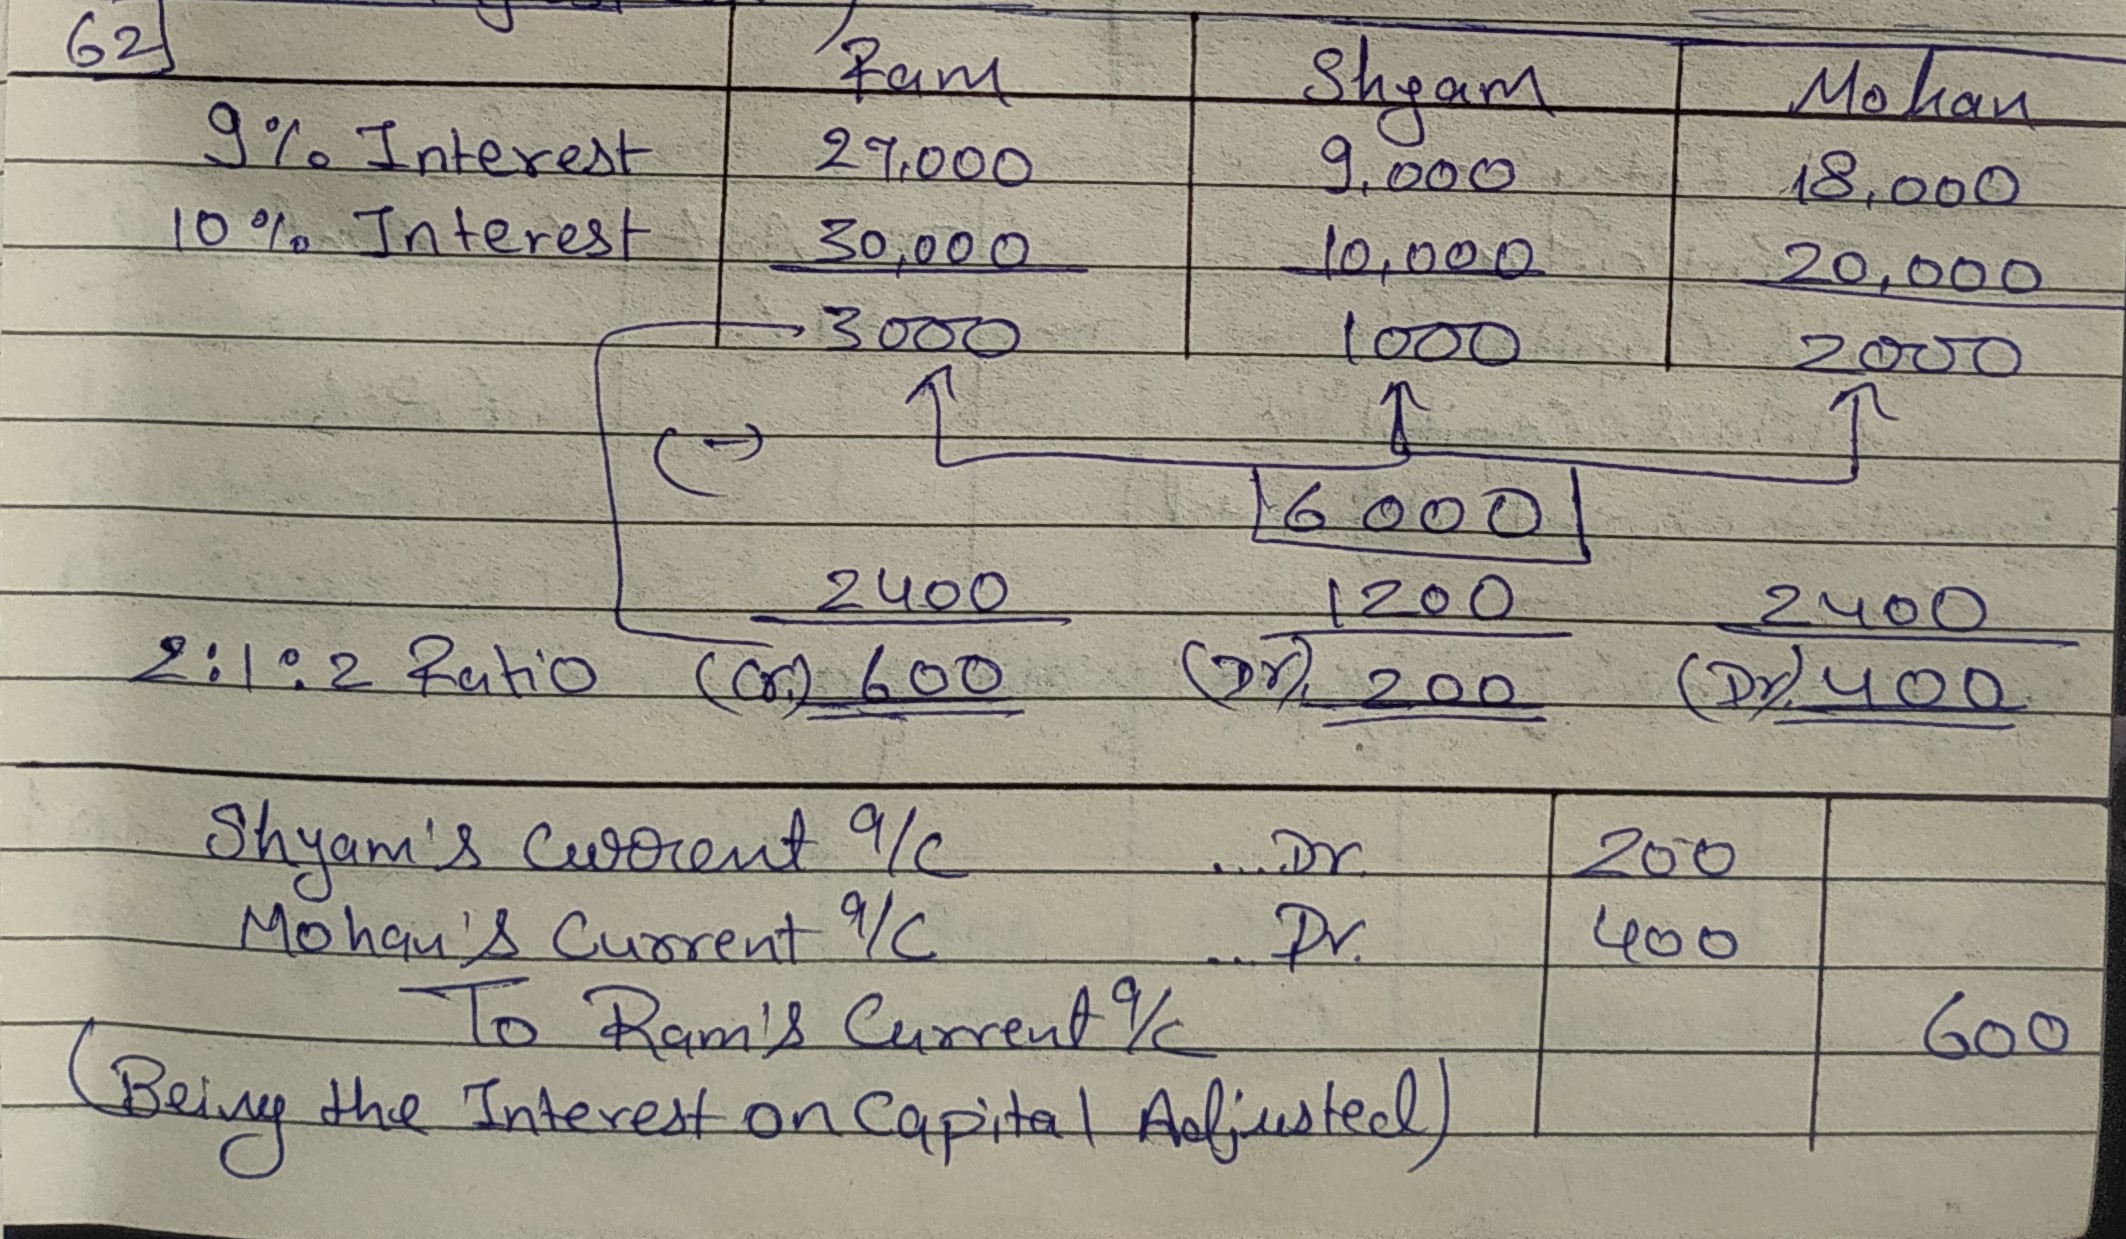 62]
Ram Shyam Mohan
9% Interest 27,000 9,000 18,000
10% Interest 30,000 10,000 20,000
3000 1000 2000
(-)
6000
2400 1200 2400
2:1:2 Ratio (Cr.) 600 (Dr). 200 (Dr). 400
Shyam's Current a/c ...Dr. 200
Mohan's Current a/c .. Dr. 400
To Ram's Current a/c 600
(Being the Interest on Capital Adjusted)